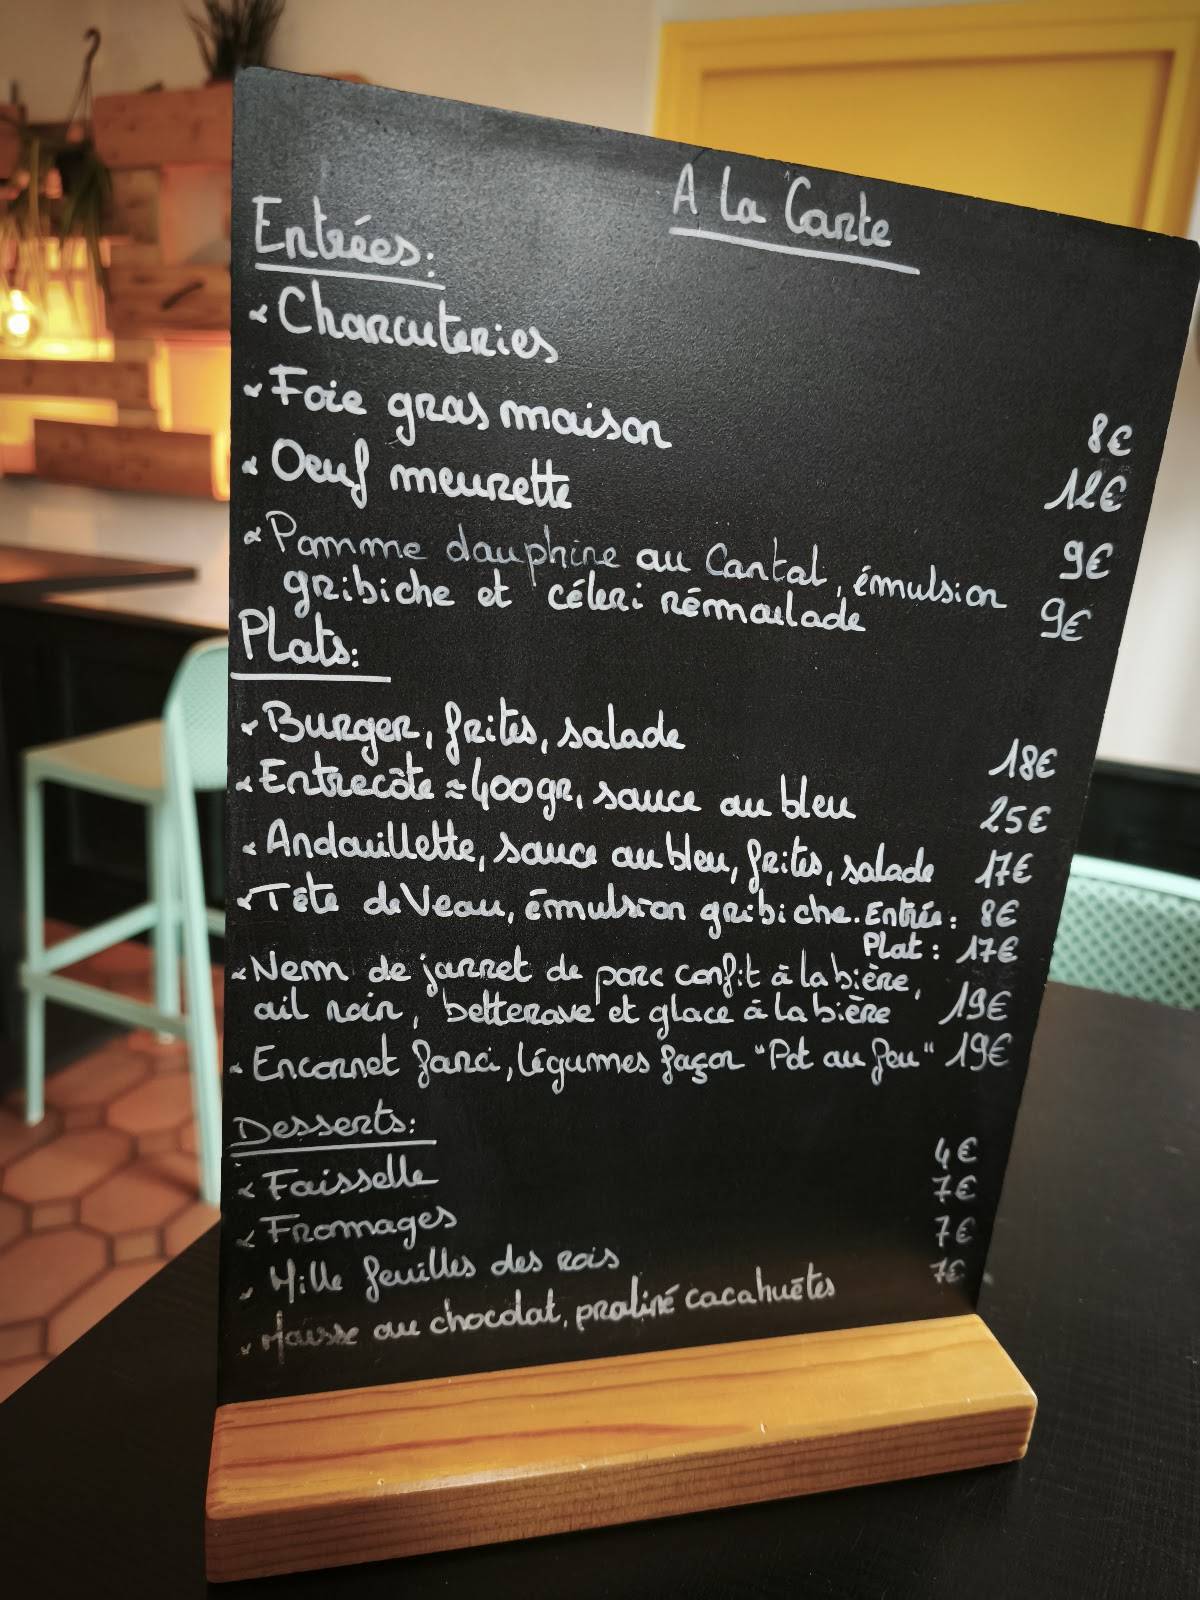 A la Carte
Entrées:
Charcuteries 8€
Foie gras maison 12€
Oeuf meurette 9€
Pomme dauphine au Cantal, émulsion
gribiche et céleri rémoulade 9€
Plats:
Burger, frites, salade 18€
Entrecôte ≈ 400gr, sauce au bleu 25€
Andouillette, sauce au bleu, frites, salade 17€
Tête de Veau, émulsion gribiche. Entrée: 8€
Plat: 17€
Nem de jarret de porc confit à la bière,
ail noir, betterave et glace à la bière 19€
Encornet farci, légumes façon "Pot au feu" 19€
Desserts:
Faisselle 4€
Fromages 7€
Mille feuilles des rois 7€
Mousse au chocolat, praliné cacahuètes 7€